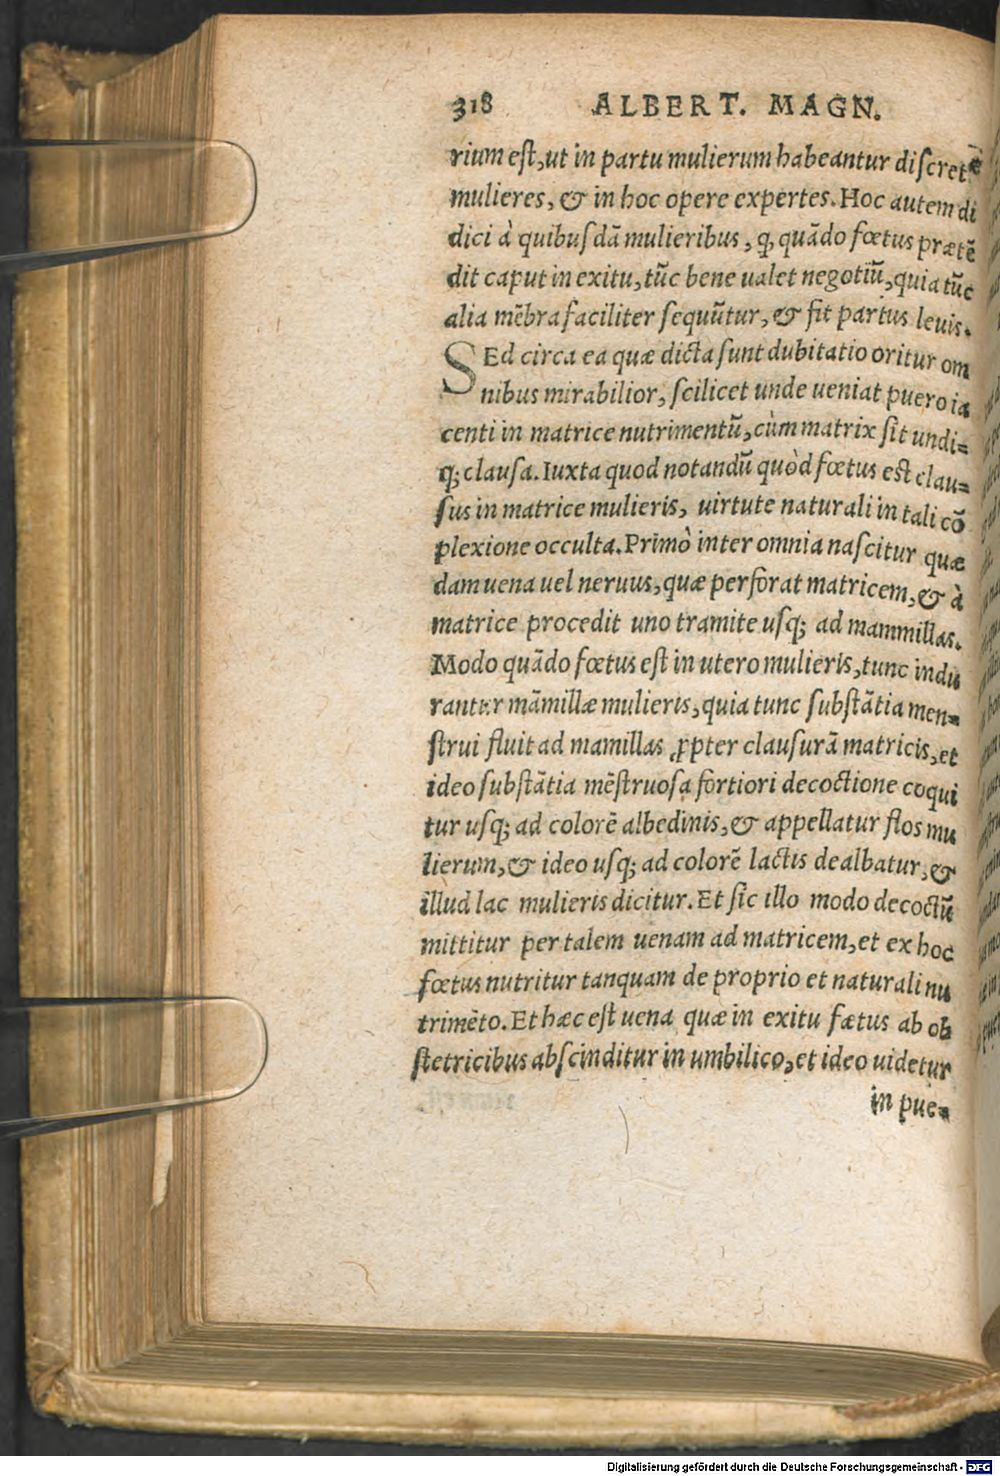 318 ALBERT. MAGN.
rium est, ut in partu mulierum habeantur discretę
mulieres, & in hoc opere expertes. Hoc autem di
dici à quibusdā mulieribus, ꝙ quādo fœtus prætē
dit caput in exitu, tūc bene ualet negotiū, quia tūc
alia mēbra faciliter sequūtur, & fit partus leuis.
SEd circa ea quæ dicta sunt dubitatio oritur om
nibus mirabilior, scilicet unde ueniat puero ia
centi in matrice nutrimentū, cùm matrix sit undi=
q; clausa. Iuxta quod notandū quòd fœtus est clau=
sus in matrice mulieris, uirtute naturali in tali cō
plexione occulta. Primò inter omnia nascitur quæ
dam uena uel neruus, quæ perforat matricem, & à
matrice procedit uno tramite usq; ad mammillas.
Modo quādo fœtus est in utero mulieris, tunc indu
rantur māmillæ mulieris, quia tunc substātia men=
strui fluit ad mamillas ꝓpter clausurā matricis, et
ideo substātia mēstruosa fortiori decoctione coqui
tur usq; ad colorē albedinis, & appellatur flos mu
lierum, & ideo usq; ad colorē lactis dealbatur, &
illud lac mulieris dicitur. Et sic illo modo decoctū
mittitur per talem uenam ad matricem, et ex hoc
fœtus nutritur tanquam de proprio et naturali nu
trimēto. Et hæc est uena quæ in exitu fætus ab ob
stetricibus abscinditur in umbilico, et ideo uidetur
in pue=
Digitalisierung gefördert durch die Deutsche Forschungsgemeinschaft - DFG